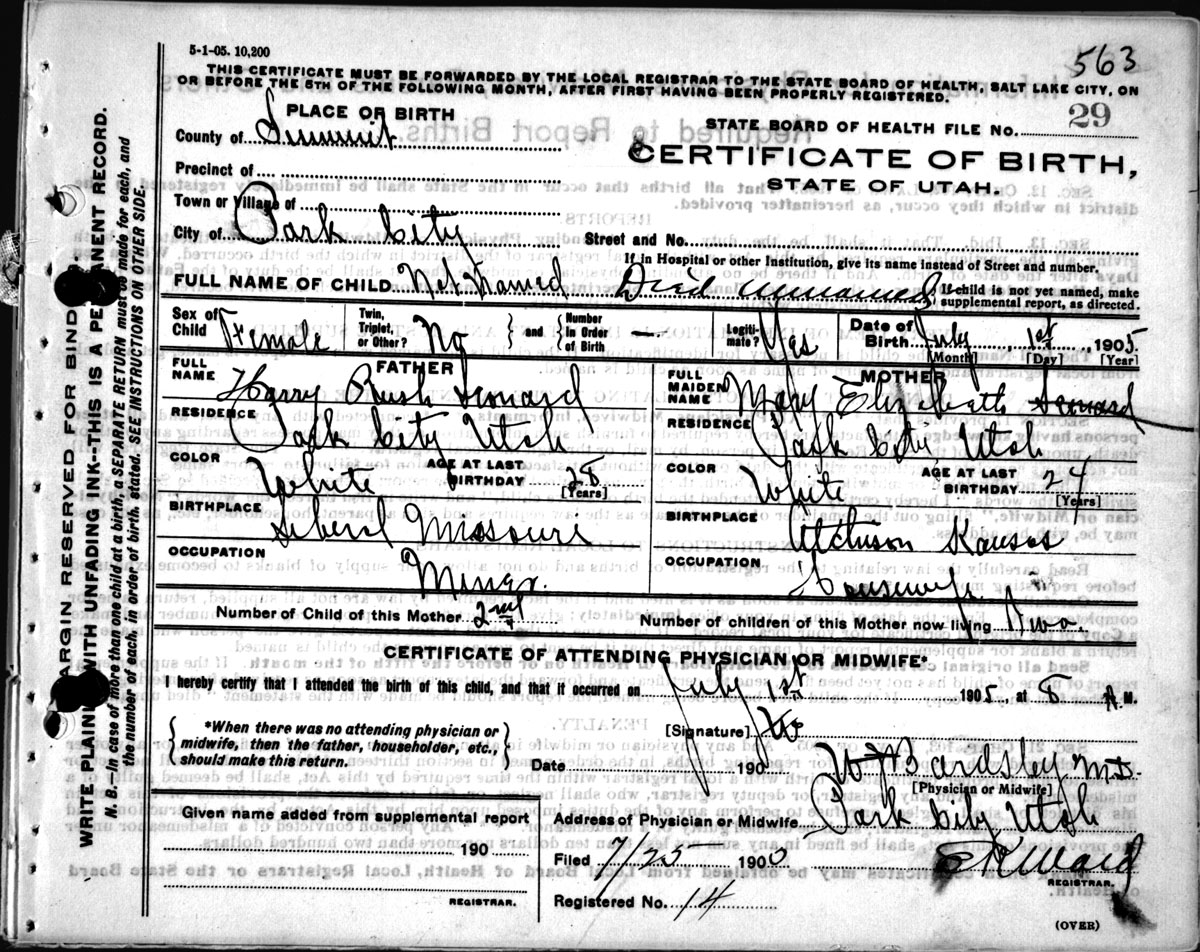 5-1-05. 10,200
563
THIS CERTIFICATE MUST BE FORWARDED BY THE LOCAL REGISTRAR TO THE STATE BOARD OF HEALTH, SALT LAKE CITY, ON
OR BEFORE THE 5TH OF THE FOLLOWING MONTH, AFTER FIRST HAVING BEEN PROPERLY REGISTERED.
PLACE OF BIRTH
County of Summit
Precinct of
Town or Village of
City of Park City
STATE BOARD OF HEALTH FILE NO. 29
CERTIFICATE OF BIRTH,
STATE OF UTAH.
Street and No.
If in Hospital or other Institution, give its name instead of Street and number.
FULL NAME OF CHILD Not Named Died unnamed
If child is not yet named, make
supplemental report, as directed.
Sex of Child Female
Twin, Triplet, or Other? No
and
Number in Order of Birth —
Legitimate? Yes
Date of Birth July 1st, 1905
[Month] [Day] [Year]
FATHER
FULL NAME Harry Rush Leonard
RESIDENCE Park City Utah
COLOR White
AGE AT LAST BIRTHDAY 28
[Years]
BIRTHPLACE Liberal Missouri
OCCUPATION Miner
MOTHER
FULL MAIDEN NAME Mary Elizabeth Leonard
RESIDENCE Park City Utah
COLOR White
AGE AT LAST BIRTHDAY 24
[Years]
BIRTHPLACE Atchison Kansas
OCCUPATION Housewife
Number of Child of this Mother 2nd
Number of children of this Mother now living Two.
CERTIFICATE OF ATTENDING PHYSICIAN OR MIDWIFE*
I hereby certify that I attended the birth of this child, and that it occurred on July 1st 1905, at 8 A M.
*When there was no attending physician or
midwife, then the father, householder, etc.,
should make this return.
[Signature]
Date 190
Bardsley M.D.
[Physician or Midwife]
Given name added from supplemental report
190
REGISTRAR.
Address of Physician or Midwife Park City Utah
Filed 7/25 190
E R Ward
REGISTRAR.
Registered No. 14
(OVER)
MARGIN RESERVED FOR BINDING.
WRITE PLAINLY WITH UNFADING INK--THIS IS A PERMANENT RECORD.
N. B.--In case of more than one child at a birth, a SEPARATE RETURN must be made for each, and
the number of each, in order of birth, stated. SEE INSTRUCTIONS ON OTHER SIDE.